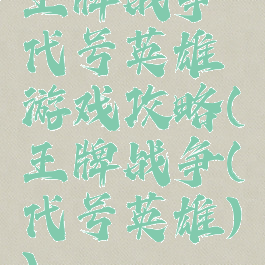 王牌战争
代号英雄
游戏攻略(
王牌战争(
代号英雄)
)